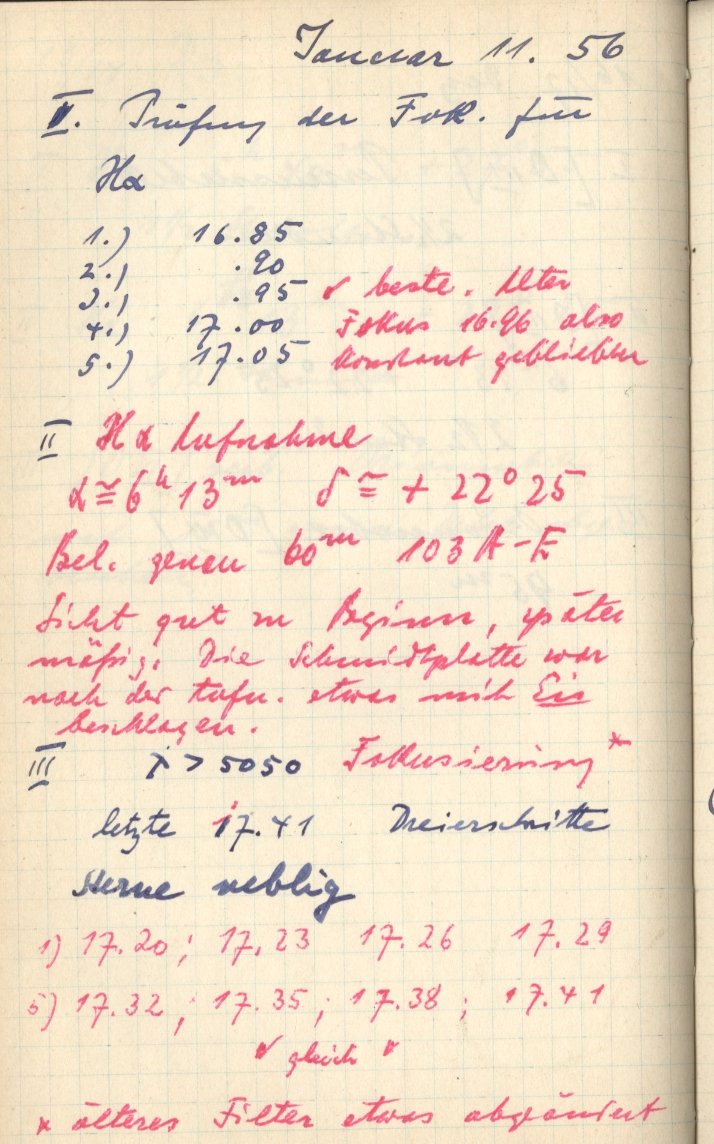 Januar 11. 56
II. Prüfung der Fok. für
Hα
1.) 16.85
2.) .90
3.) .95 ✓ beste. Alter
4.) 17.00 Fokus 16.96 also
5.) 17.05 konstant geblieben
II Hα Aufnahme
α ≅ 6h 13m δ ≅ + 22° 25
Bel. genau 60m 103 A-E
Sicht gut zu Beginn, später
mäßig. Die Schmidtplatte war
nach der Aufn. etwas mit Eis
beschlagen.
III λ > 5050 Fokusierung *
letzte 17.41 Dreierschritte
Sterne neblig
1) 17.20; 17.23 17.26 17.29
5) 17.32; 17.35; 17.38; 17.41
✓ gleich ✓
* älteres Filter etwas abgeändert